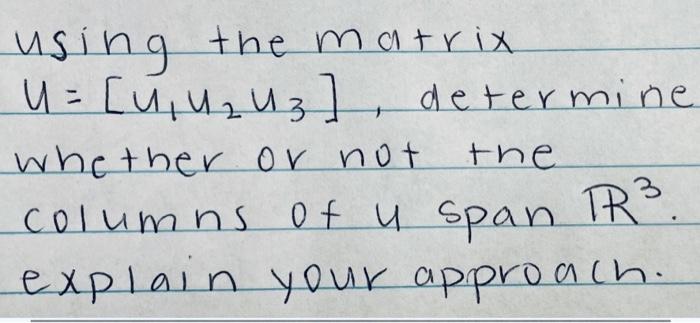 using the matrix
U = [u₁ u₂ u₃] , determine
whether or not the
columns of u span ℝ³.
explain your approach.